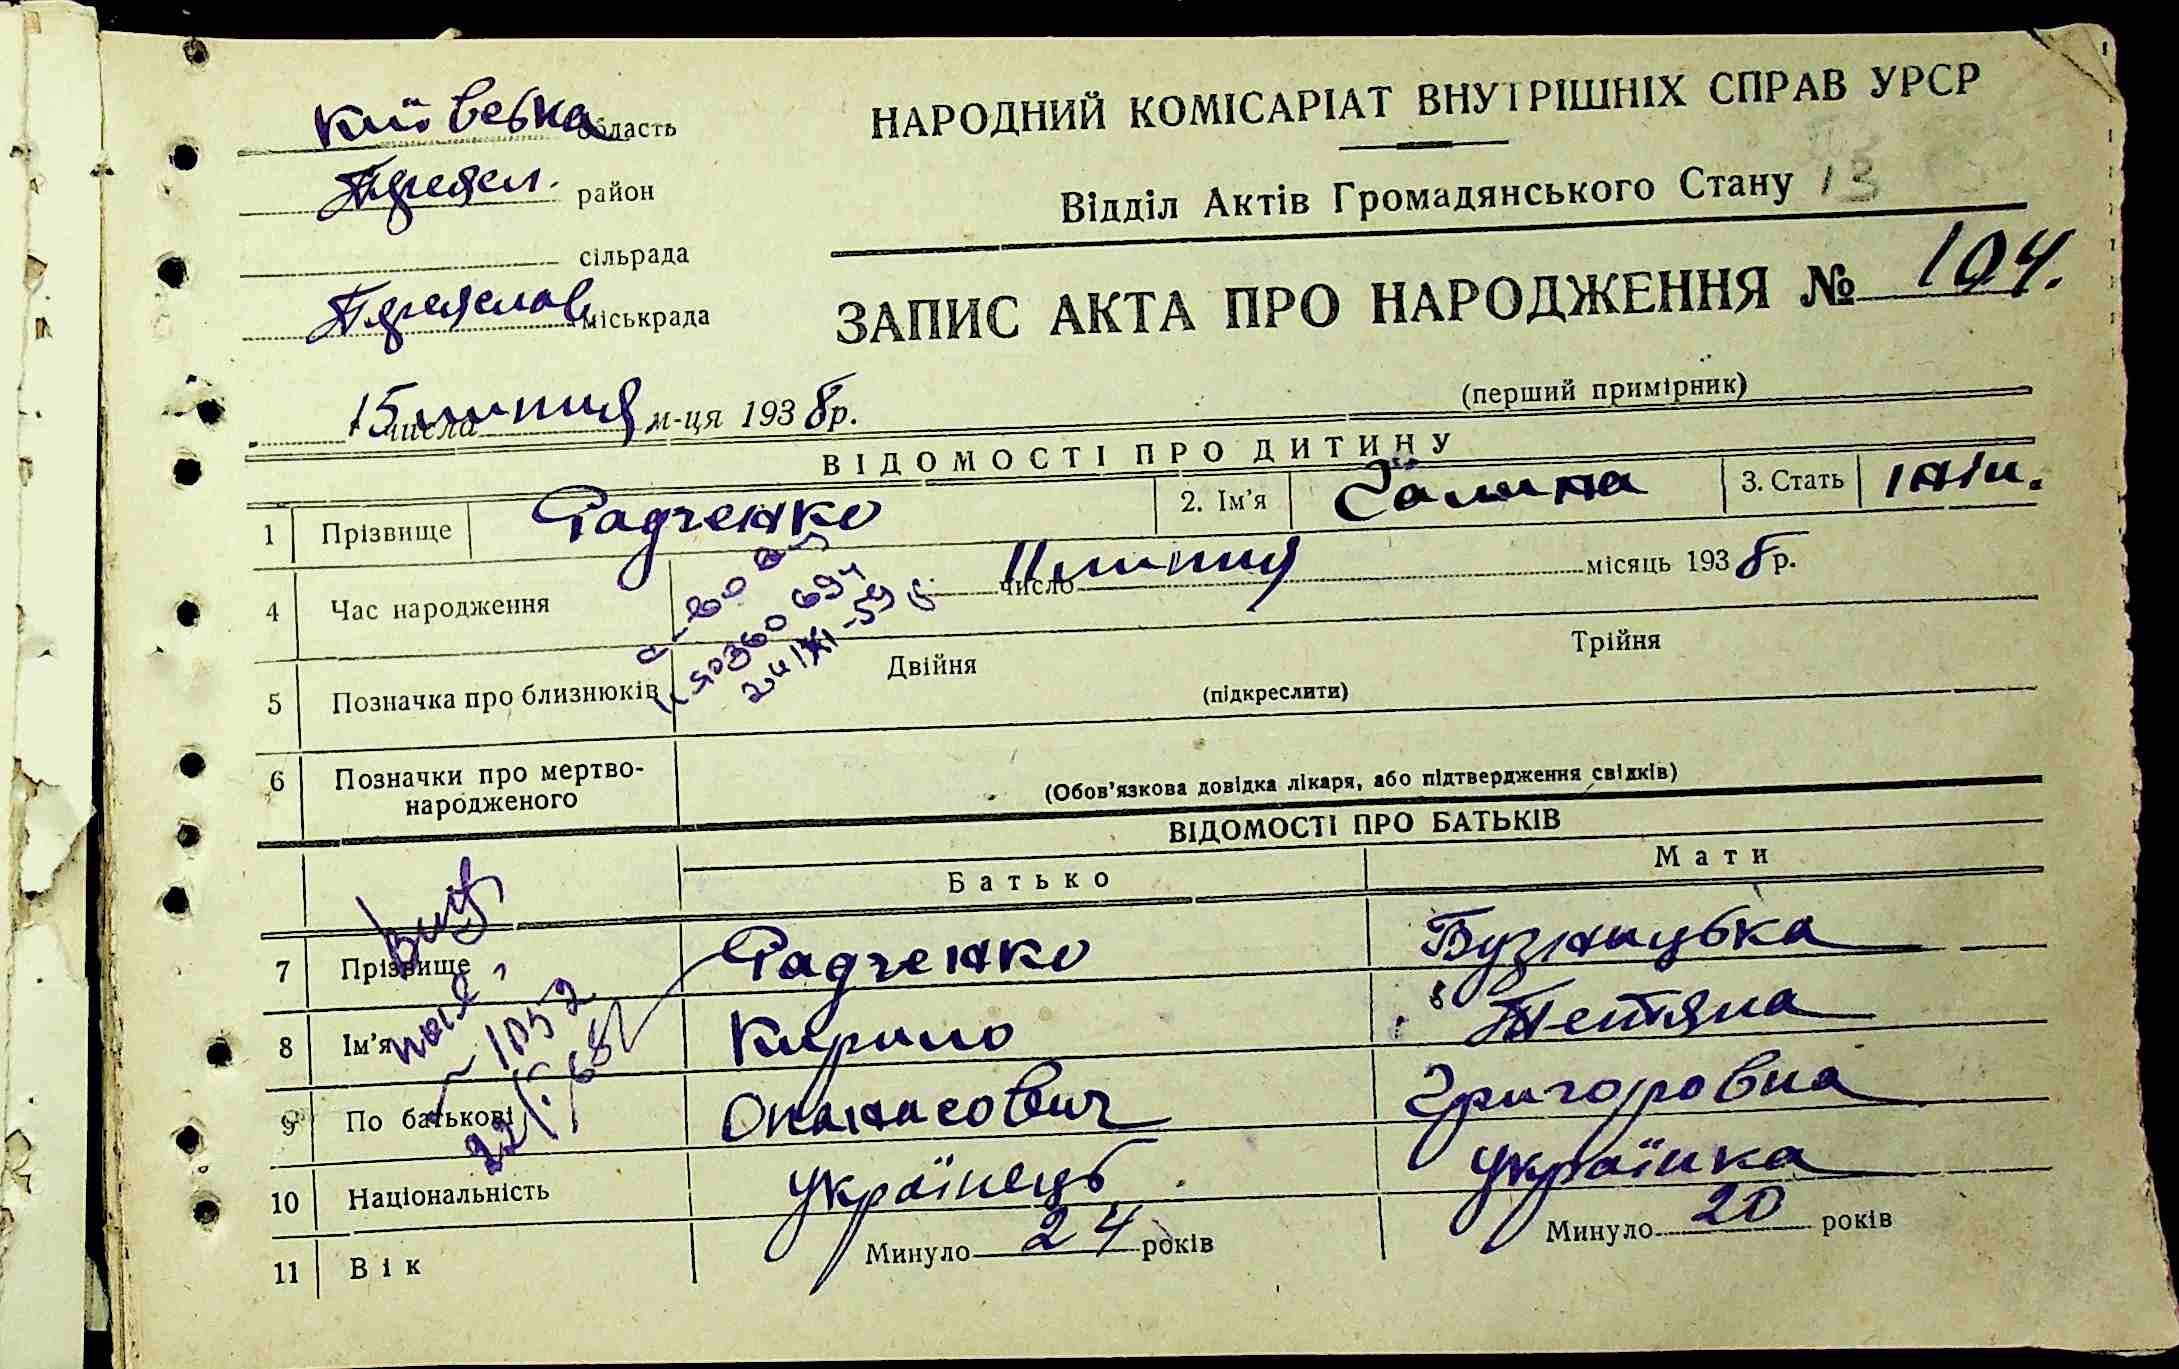 Київська область
НАРОДНИЙ КОМІСАРІАТ ВНУТРІШНІХ СПРАВ УРСР
Переясл. район
Відділ Актів Громадянського Стану 13
сільрада
Переяслав міськрада
ЗАПИС АКТА ПРО НАРОДЖЕННЯ № 104.
15 числа липня м-ця 1938 р.
(перший примірник)
ВІДОМОСТІ ПРО ДИТИНУ
1 Прізвище Радченко 2. Ім'я Галина 3. Стать жін.
4 Час народження 11 число липня місяць 1938 р.
5 Позначка про близнюків Двійня Трійня
(підкреслити)
6 Позначки про мертвонародженого
(Обов'язкова довідка лікаря, або підтвердження свідків)
ВІДОМОСТІ ПРО БАТЬКІВ
Батько Мати
7 Прізвище Радченко Бузницька
8 Ім'я Кирило Тетяна
9 По батькові Опанасович Григоровна
10 Національність українець українка
11 Вік Минуло 24 років Минуло 20 років